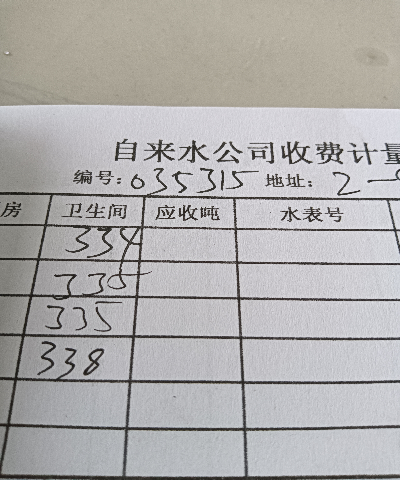 自来水公司收费计量
编号: 035315 地址: 2-
房 卫生间 应收吨 水表号
334
335
335
338